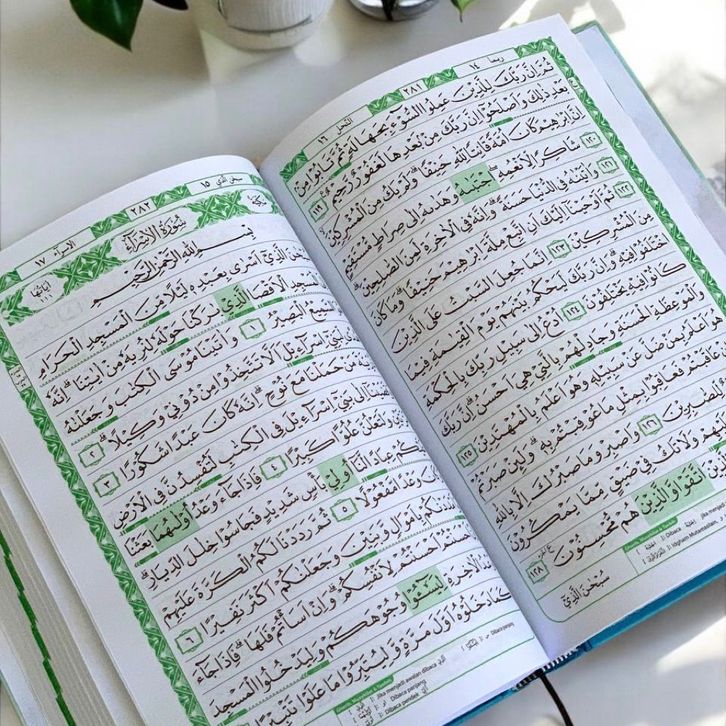 ربما ١٤
٢٨١
النحل ١٦
ثُمَّ اِنَّ رَبَّكَ لِلَّذِيْنَ عَمِلُوا السُّوْۤءَ بِجَهَالَةٍ ثُمَّ تَابُوْا مِنْۢ
بَعْدِ ذٰلِكَ وَاَصْلَحُوْٓا اِنَّ رَبَّكَ مِنْۢ بَعْدِهَا لَغَفُوْرٌ رَّحِيْمٌ ١١٩
اِنَّ اِبْرٰهِيْمَ كَانَ اُمَّةً قَانِتًا لِّلّٰهِ حَنِيْفًا وَلَمْ يَكُ مِنَ الْمُشْرِكِيْنَ ١٢٠
شَاكِرًا لِّاَنْعُمِهِ اِجْتَبٰىهُ وَهَدٰىهُ اِلٰى صِرَاطٍ مُّسْتَقِيْمٍ
وَاٰتَيْنٰهُ فِى الدُّنْيَا حَسَنَةً وَاِنَّهٗ فِى الْاٰخِرَةِ لَمِنَ الصّٰلِحِيْنَ ١٢٢
ثُمَّ اَوْحَيْنَآ اِلَيْكَ اَنِ اتَّبِعْ مِلَّةَ اِبْرٰهِيْمَ حَنِيْفًا وَمَا كَانَ
مِنَ الْمُشْرِكِيْنَ ١٢٣ اِنَّمَا جُعِلَ السَّبْتُ عَلَى الَّذِيْنَ
اخْتَلَفُوْا فِيْهِ وَاِنَّ رَبَّكَ لَيَحْكُمُ بَيْنَهُمْ يَوْمَ الْقِيٰمَةِ فِيْمَا
كَانُوْا فِيْهِ يَخْتَلِفُوْنَ ١٢٤ اُدْعُ اِلٰى سَبِيْلِ رَبِّكَ بِالْحِكْمَةِ
وَالْمَوْعِظَةِ الْحَسَنَةِ وَجَادِلْهُمْ بِالَّتِيْ هِيَ اَحْسَنُ اِنَّ رَبَّكَ
هُوَ اَعْلَمُ بِمَنْ ضَلَّ عَنْ سَبِيْلِهٖ وَهُوَ اَعْلَمُ بِالْمُهْتَدِيْنَ ١٢٥
عَاقَبْتُمْ فَعَاقِبُوْا بِمِثْلِ مَا عُوْقِبْتُمْ بِهٖ وَلَىِٕنْ صَبَرْتُمْ
لِّلصّٰبِرِيْنَ ١٢٦ وَاصْبِرْ وَمَا صَبْرُكَ اِلَّا بِاللّٰهِ
عَلَيْهِمْ وَلَا تَكُ فِيْ ضَيْقٍ مِّمَّا يَمْكُرُوْنَ
اتَّقَوْا وَّالَّذِيْنَ هُمْ مُّحْسِنُوْنَ ١٢٨
سُبْحٰنَ الَّذِيْ
سبحن الذي ١٥
٢٨٢
الاسراء ١٧
سُوْرَةُ الْاِسْرَاۤءِ
مكية
اياتها ١١١
بِسْمِ اللّٰهِ الرَّحْمٰنِ الرَّحِيْمِ
سُبْحٰنَ الَّذِيْٓ اَسْرٰى بِعَبْدِهٖ لَيْلًا مِّنَ الْمَسْجِدِ الْحَرَامِ
الْمَسْجِدِ الْاَقْصَا الَّذِيْ بٰرَكْنَا حَوْلَهٗ لِنُرِيَهٗ مِنْ اٰيٰتِنَا اِنَّهٗ
السَّمِيْعُ الْبَصِيْرُ ١ وَاٰتَيْنَا مُوْسَى الْكِتٰبَ وَجَعَلْنٰهُ
لِّبَنِيْٓ اِسْرَاۤءِيْلَ اَلَّا تَتَّخِذُوْا مِنْ دُوْنِيْ وَكِيْلًا ٢
مَنْ حَمَلْنَا مَعَ نُوْحٍ اِنَّهٗ كَانَ عَبْدًا شَكُوْرًا ٣
وَقَضَيْنَآ اِلٰى بَنِيْٓ اِسْرَاۤءِيْلَ فِى الْكِتٰبِ لَتُفْسِدُنَّ فِى الْاَرْضِ
مَرَّتَيْنِ وَلَتَعْلُنَّ عُلُوًّا كَبِيْرًا ٤ فَاِذَا جَاۤءَ وَعْدُ اُوْلٰىهُمَا بَعَثْنَا
عَلَيْكُمْ عِبَادًا لَّنَآ اُولِيْ بَأْسٍ شَدِيْدٍ فَجَاسُوْا خِلٰلَ الدِّيَارِ
وَعْدًا مَّفْعُوْلًا ٥ ثُمَّ رَدَدْنَا لَكُمُ الْكَرَّةَ عَلَيْهِمْ
وَاَمْدَدْنٰكُمْ بِاَمْوَالٍ وَّبَنِيْنَ وَجَعَلْنٰكُمْ اَكْثَرَ نَفِيْرًا ٦
اَحْسَنْتُمْ اَحْسَنْتُمْ لِاَنْفُسِكُمْ وَاِنْ اَسَأْتُمْ فَلَهَا فَاِذَا جَاۤءَ
وَعْدُ الْاٰخِرَةِ لِيَسُوْۤءٗا وُجُوْهَكُمْ وَلِيَدْخُلُوا الْمَسْجِدَ
كَمَا دَخَلُوْهُ اَوَّلَ مَرَّةٍ وَّلِيُتَبِّرُوْا مَا عَلَوْا تَتْبِيْرًا